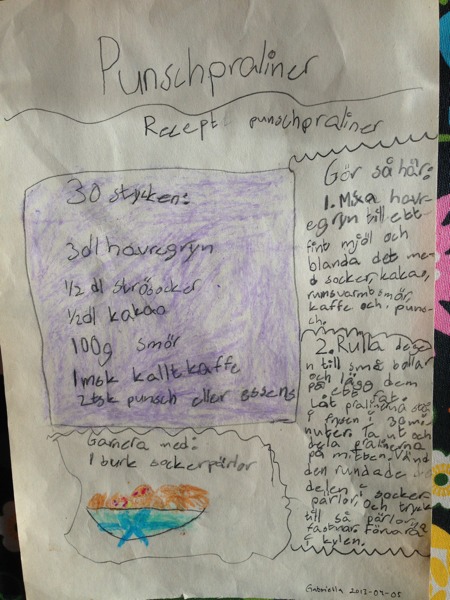 Punschpraliner
Recept punschpraliner
30 stycken:
3dl havregryn
1/2 dl strösocker
1/2dl kakao
100g smör
1msk kallt kaffe
2tsk punsch eller essens
Garnera med:
1 burk sockerpärlor
Gör så här:
1. Mixa havr-
egryn till ett
fint mjöl och
blanda det me-
d socker, kakao,
rumsvarmt smör,
kaffe och puns-
ch.
2. Rulla dege
n till små bollar
och lägg dem
på ett fat.
Låt pralinerna stå
i frysen i 30 mi-
nuter. Ta ut och
dela pralinerna
på mitten. Vänd
den rundade
delen i socker
pärlor, och tryck
till så pärlorna
fastnar. Förvara
i kylen.
Gabriella 2013-04-05